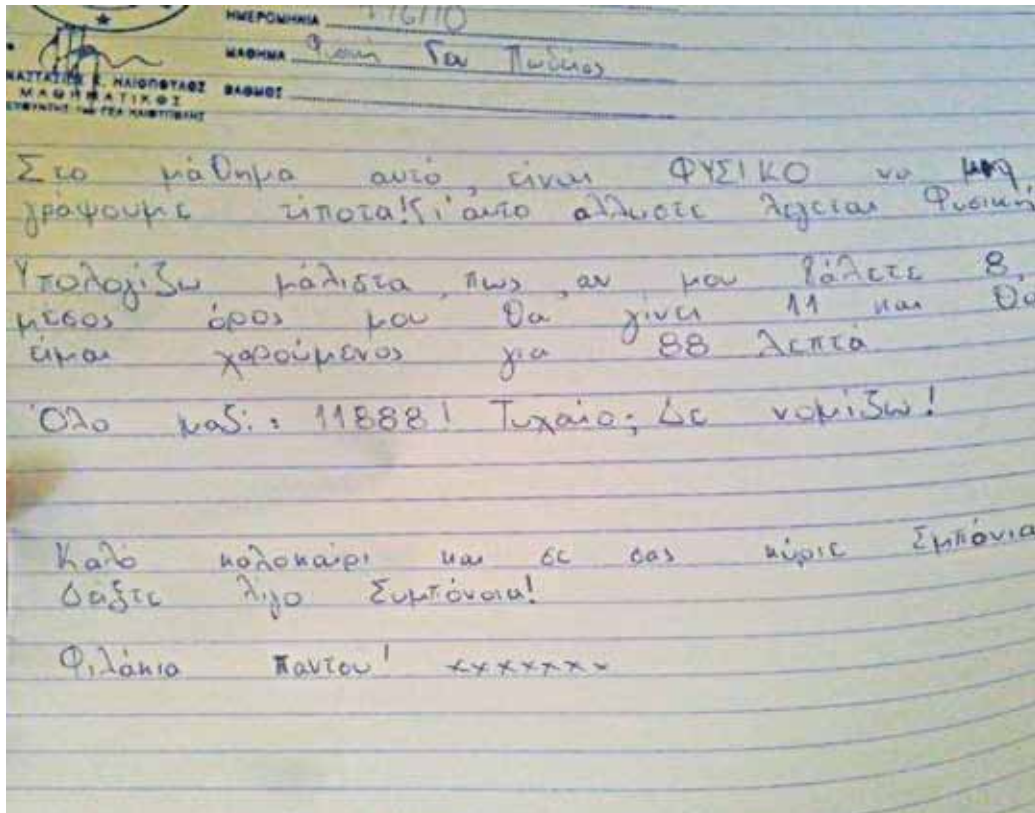 ΗΜΕΡΟΜΗΝΙΑ
ΜΑΘΗΜΑ Φυσική Γεν Παιδείας
Ε. ΗΛΙΟΠΟΥΛΟΣ ΒΑΘΜΟΣ
ΜΑΘΗΜΑΤΙΚΟΣ
Στο μάθημα αυτό, είναι ΦΥΣΙΚΟ να μη
γράψουμε τίποτα! Γι'αυτό αλλωστε λέγεται Φυσική
Υπολογίζω μάλιστα, πως, αν μου βάλετε 8,
μέσος όρος μου θα γίνει 11 και θα
είμαι χαρούμενος για 88 λεπτά
Όλο μαζί: 11888! Τυχαίο; Δε νομίζω!
Καλό καλοκαίρι και σε σας κύριε Σμπόνια
δείξτε λίγο Συμπόνοια!
Φιλάκια παντου! xxxxxxx